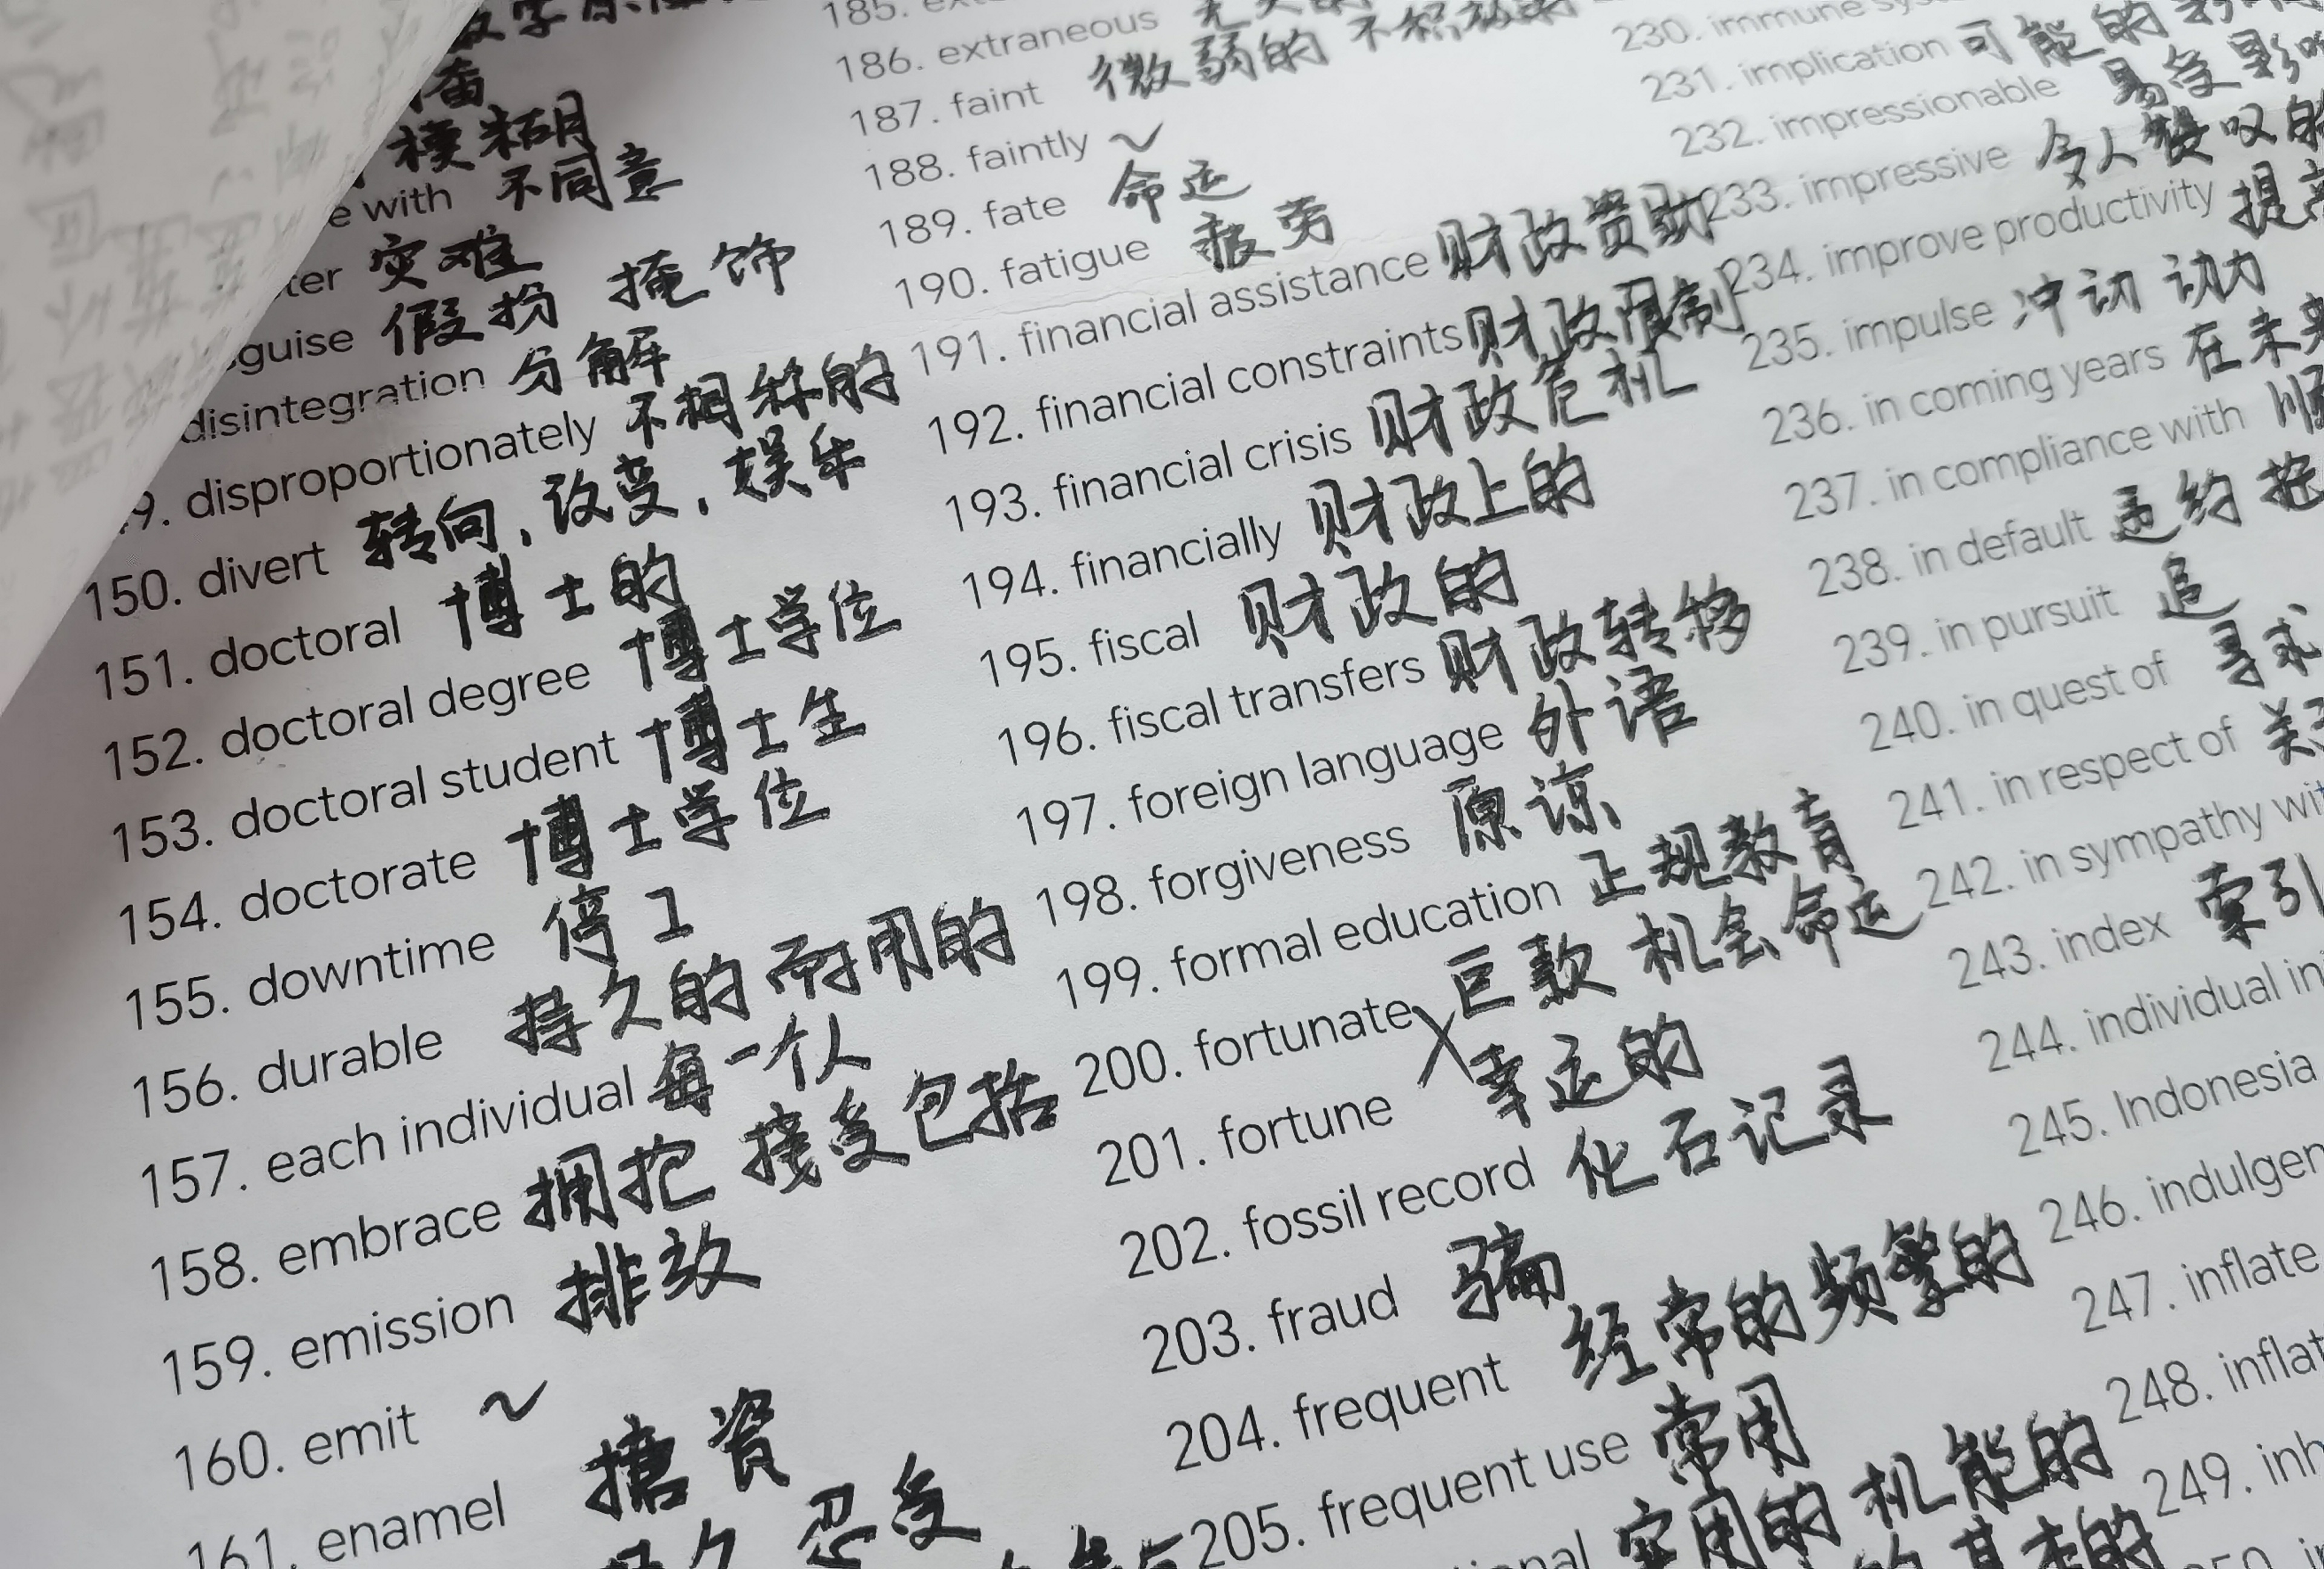 模糊
e with 不同意
ter 灾难
guise 假扮 掩饰
disintegration 分解
9. disproportionately 不相称的
150. divert 转向, 改变, 娱乐
151. doctoral 博士的
152. doctoral degree 博士学位
153. doctoral student 博士生
154. doctorate 博士学位
155. downtime 停工
156. durable 持久的 耐用的
157. each individual 每一个人
158. embrace 拥抱 接受 包括
159. emission 排放
160. emit ~
161. enamel 搪瓷
忍受
185.
186. extraneous
187. faint 微弱的 不积极的
188. faintly ~
189. fate 命运
190. fatigue 疲劳
191. financial assistance 财政资助
192. financial constraints 财政限制
193. financial crisis 财政危机
194. financially 财政上的
195. fiscal 财政的
196. fiscal transfers 财政转移
197. foreign language 外语
198. forgiveness 原谅
199. formal education 正规教育
200. fortunate 巨款 机会 命运
201. fortune 幸运的
202. fossil record 化石记录
203. fraud 骗
204. frequent 经常的 频繁的
205. frequent use 常用
ional 实用的 机能的
基本的
230. immune sys
231. implication 可能的
232. impressionable 易受影响
233. impressive 令人赞叹的
234. improve productivity 提高
235. impulse 冲动 动力
236. in coming years 在未来
237. in compliance with 顺
238. in default 违约
239. in pursuit 追
240. in quest of 寻求
241. in respect of 关
242. in sympathy wit
243. index 索引
244. individual in
245. Indonesia
246. indulgen
247. inflate
248. inflat
249. inh